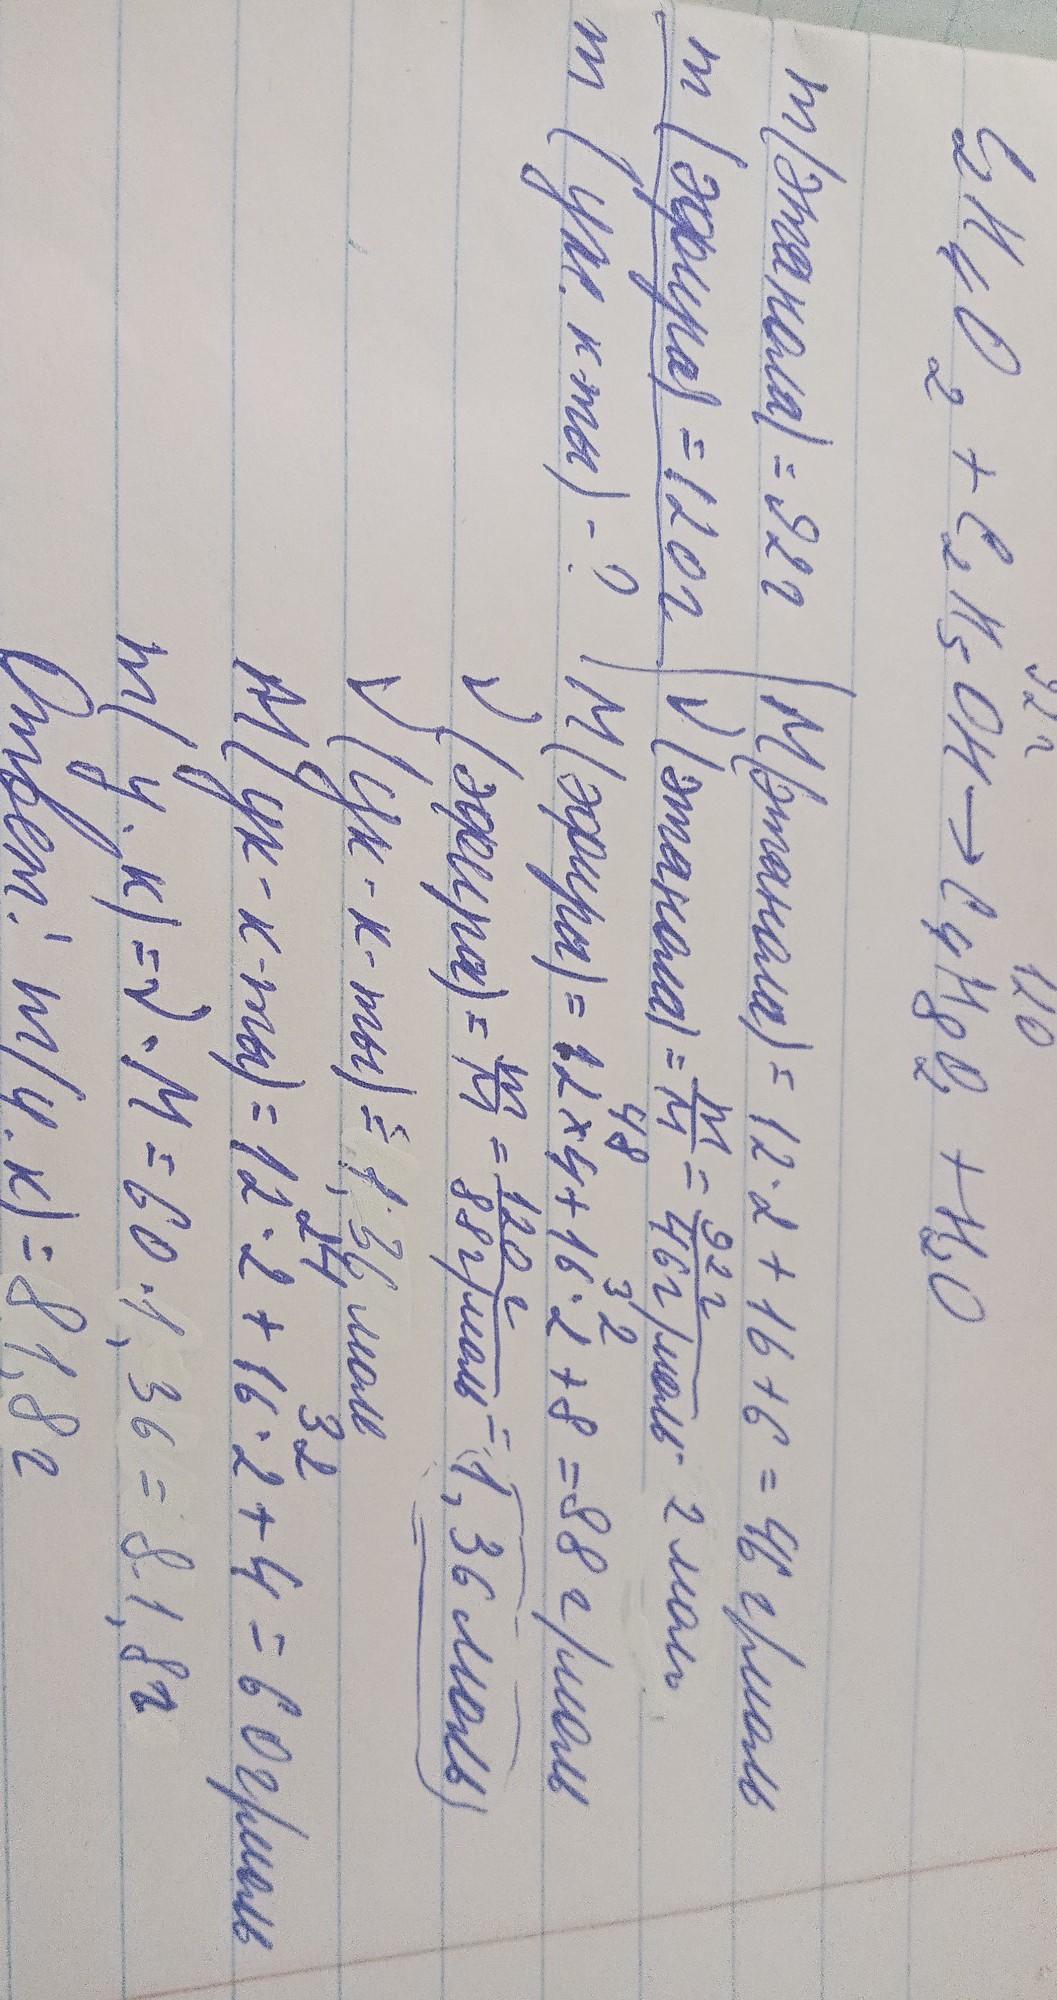 92г 120
C₂H₄O₂ + C₂H₅OH → C₄H₈O₂ + H₂O
m(этанола) = 92г
m(эфира) = 120г
m(ук. к-ты) - ?
M(этанола) = 12·2 + 16 + 6 = 46 г/моль
ν(этанола) = m/M = 92г/46г/моль = 2 моль
48 32
M(эфира) = 12×4 + 16·2 + 8 = 88 г/моль
ν(эфира) = m/M = 120г/88г/моль = 1,36 моль
ν(ук-к-ты) = 1,36 моль
24 32
M(ук-к-ты) = 12·2 + 16·2 + 4 = 60 г/моль
m(у.к) = ν·M = 60·1,36 = 81,8г
Ответ: m(у.к) = 81,8г